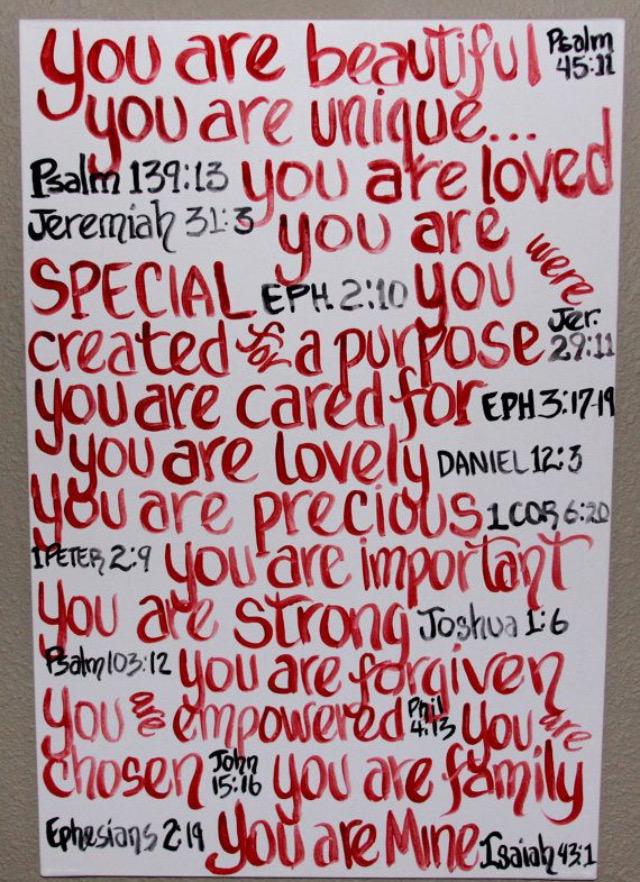 you are beautiful Psalm 45:11
you are unique...
Psalm 139:13 you are loved
Jeremiah 31:3 you are
SPECIAL EPH. 2:10 you were
created for a purpose Jer. 29:11
you are cared for EPH 3:17-19
you are lovely DANIEL 12:3
you are precious 1 COR 6:20
1 PETER 2:9 you are important
you are strong Joshua 1:6
Psalm 103:12 you are forgiven
you are empowered Phil 4:13 you are
chosen John 15:16 you are family
Ephesians 2:19 you are Mine Isaiah 43:1